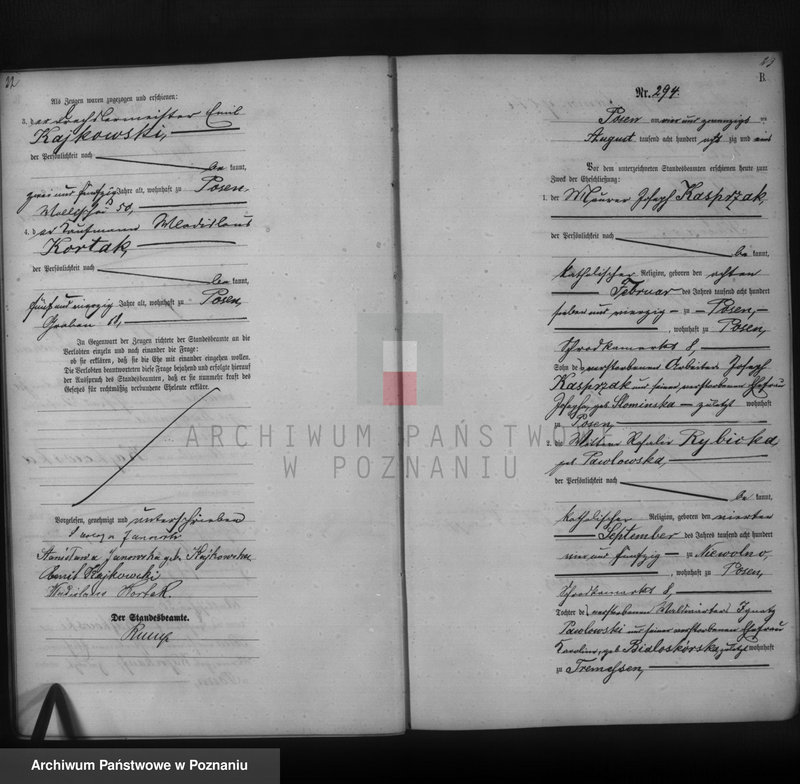 22
Als Zeugen waren zugezogen und erschienen:
3. der Drechslermeister Emil
Kajkowski,
der Persönlichkeit nach
be kannt,
zwei und fünfzig Jahre alt, wohnhaft zu Posen
50,
4. der Kaufmann Wladislaus
Kortak,
der Persönlichkeit nach
be kannt,
fünf und Jahre alt, wohnhaft zu Posen,
Graben
In Gegenwart der Zeugen richtete der Standesbeamte an die
Verlobten einzeln und nach einander die Frage:
ob sie erklären, daß sie die Ehe mit einander eingehen wollen.
Die Verlobten beantworteten diese Frage bejahend und erfolgte hierauf
der Ausspruch des Standesbeamten, daß er sie nunmehr kraft des
Gesetzes für rechtmäßig verbundene Eheleute erkläre.
Vorgelesen, genehmigt und unterschrieben
Stanisława Janowska geb. Kajkowska
Emil Kajkowski
Wladislaus Kortak.
Der Standesbeamte.
B.
Nr. 294.
Posen am vier und zwanzigsten
August tausend acht hundert acht zig und eins
Vor dem unterzeichneten Standesbeamten erschienen heute zum
Zweck der Eheschließung:
1. der Maurer Joseph Kasprzak,
der Persönlichkeit nach
be kannt,
katholischer Religion, geboren den achten
Februar des Jahres tausend acht hundert
sieben und vierzig zu Posen,
, wohnhaft zu Posen,
Schrodkamarkt 8,
Sohn des verstorbenen Arbeiters Joseph
Kasprzak und seiner verstorbenen Ehefrau
Josepha, geb. Slominska zuletzt wohnhaft
zu Posen,
2. die Wittwe Rosalie Rybicka,
geb. Pawlowska,
der Persönlichkeit nach
be kannt,
katholischer Religion, geboren den vierten
September des Jahres tausend acht hundert
vier und fünfzig zu Niewolno,
, wohnhaft zu Posen,
Schrodkamarkt 8,
Tochter des verstorbenen Waldwärters Ignatz
Pawlowski und seiner verstorbenen Ehefrau
Karoline, geb. Bialoskorska zuletzt wohnhaft
zu Tremessen,
ARCHIWUM PAŃSTWOWE
W POZNANIU
Archiwum Państwowe w Poznaniu